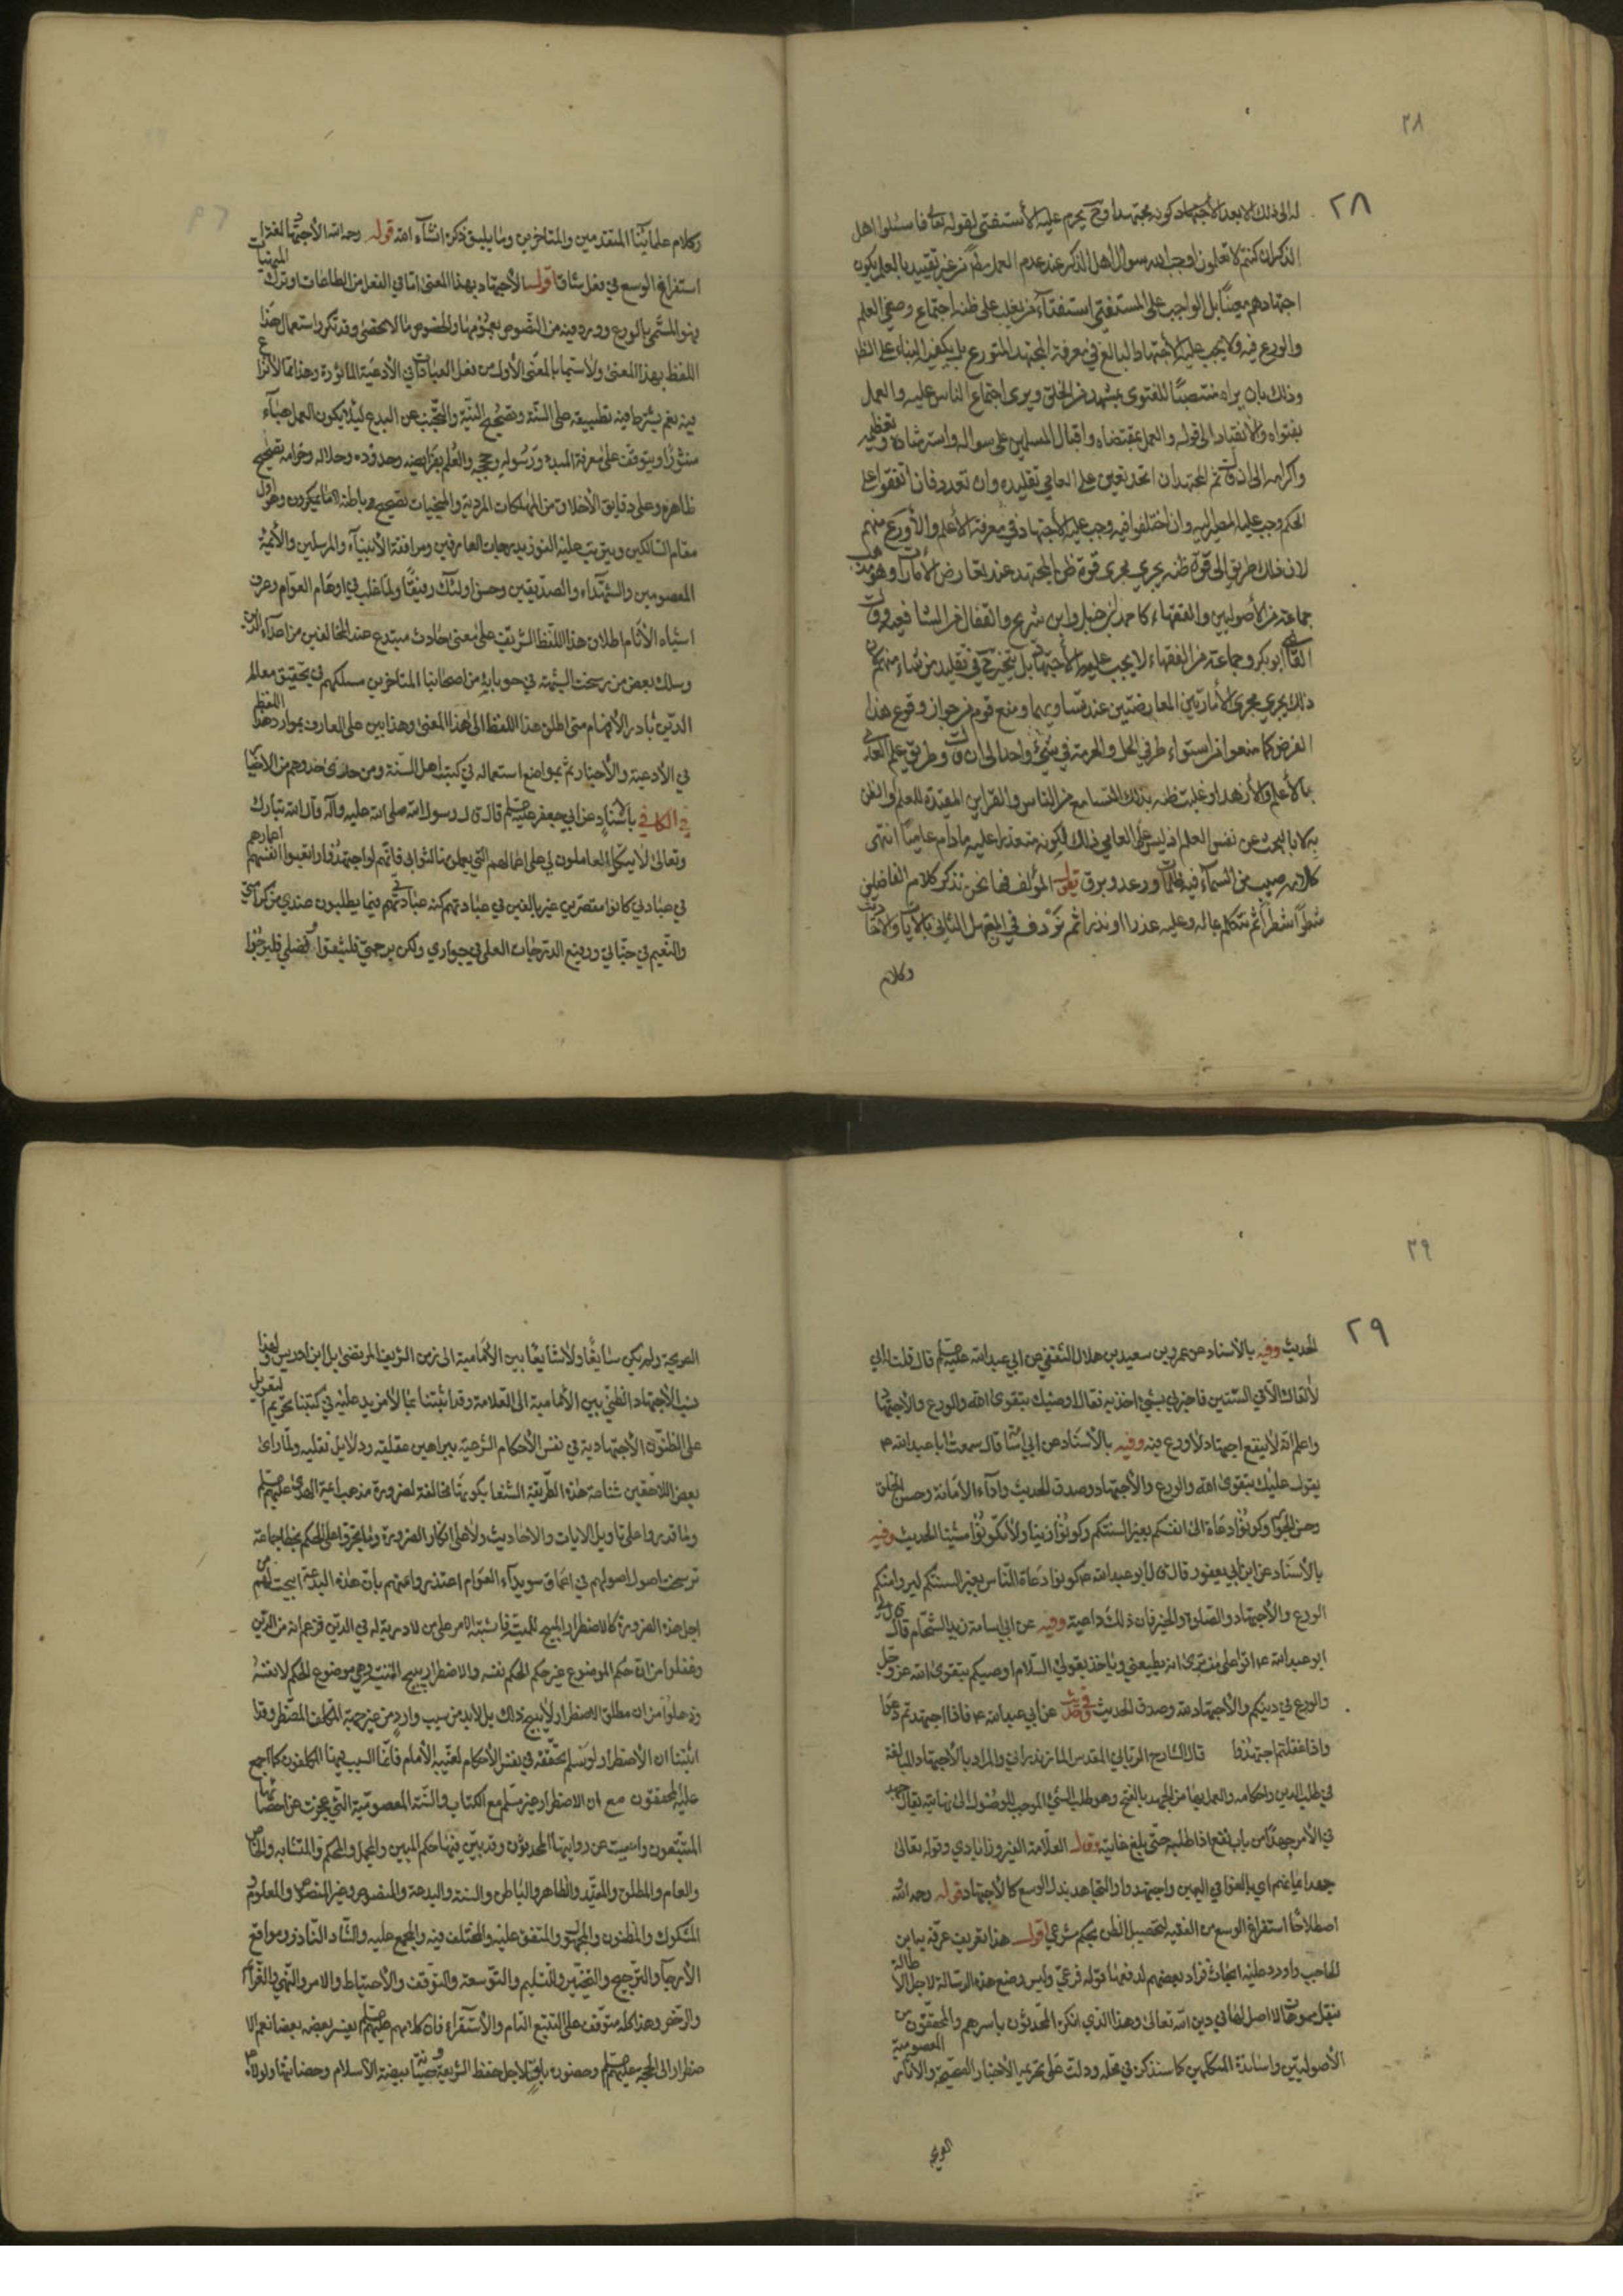 ٢٨
٢٨
له الى ذلك الا بعد الاجتهاد كونه مجتهدا وح يحرم عليه الاستفتى لقوله تعالى فاسئلوا اهل
الذكر ان كنتم لا تعلمون اوجب الله سوال اهل الذكر عند عدم العلم من غير تقييد بالعلم بكون
اجتهادهم بل الواجب على المستفتي استفتاء من يغلب على ظنه اجتماع وصفي العلم
والورع فيه ولا يجب عليه الاجتهاد البالغ في معرفة المجتهد المتورع بل يكفيه البناء على الظا
وذلك بان يراه منتصبًا للفتوى بمشهد من الخلق ويرى اجتماع الناس عليه والعمل
بفتواه والانقياد الى قوله والعمل بمقتضاه واقبال المسلمين على سواله واسترشاده وتعظيمه
واكرامه الى ان ق ثم المجتهد ان اتحد تعين على العامي تقليده وان تعدد فان اتفقوا على
الحكم وجب عليه المصير اليه وان اختلفوا فيه وجب عليه الاجتهاد في معرفة الاعلم والاورع منهم
لان ذلك طريق الى قوة ظنه يجري مجرى قوة ظن المجتهد عند تعارض الامارات وهو مذهب
جماعة من الاصوليين والفقهاء كاحمد بن حنبل وابن شريح والقفال من الشافعيه وق
القاضي ابوبكر وجماعة من الفقهاء لا يجب عليه الاجتهاد بل يتخير ح في تقليد من شاء منهم لان
ذلك يجري مجرى الامارتين المعارضتين عند تساويهما ومنع قوم من جواز وقوع هذا
الفرض كما منعوا من استواء طرفي الحل والحرمة في شيء واحد الى ان ق وطريق علم العامي
بالاعلم والازهد او غلبت ظنه بذلك التسامع من الناس والقراين المفيدة للعلم او الظن
به لا بالبحث عن نفس العلم اذ ليس على العامي ذلك لكونه متعذرا عليه مادام عاميًا انتهى
كلامه صيب من السماء فيه ظلمات ورعد وبرق يقول المؤلف فها نحن نذكر كلام الفاضلين
شطرًا شطرًا ثم نتكلم بماله وعليه عذرا او نذرا ثم نردف في المقصد الثاني بالايات والاحاديث
وكلام
وكلام علمائنا المتقدمين والمتاخرين وما يليق ذكره انشاء الله قوله رحمه الله الاجتهاد لغة
استفراغ الوسع في فعل شاق اقول الاجتهاد بهذا المعنى اما في الفعل من الطاعات او ترك المنهيات
فهو المسمى بالورع وورد فيه من النصوص بعمومها والخصوص ما لا تحصى وقد تكرر استعمال هذا
اللفظ بهذا المعنى ولاسيما بالمعنى الاول من فعل العبادات في الادعية الماثورة وهذا مما لا نزاع
فيه نعم يشترط فيه تطبيقه على السنة وتصحيح النية والتجنب عن البدع لئلا يكون العمل هباء
منثورًا ويتوقف على معرفة المبدء ورسوله وحججه والعلم بفرايضه وحدوده وحلاله وحرامه لتصحيح
ظاهره وعلى دقايق الاخلاق من المهلكات المردية والمنجيات لتصحيح باطنه وهو اول
مقام السالكين ويترتب عليه الفوز بدرجات العارفين ومرافقة الانبياء والمرسلين والائمة
المعصومين والشهداء والصديقين وحسن اولئك رفيقًا ولما غلب في اوهام العوام وعرف
اشباه الانام اطلاق هذا اللفظ الشريف على معنى حادث مبتدع عند المخالفين من اعداء الدين
وسلك بعض من رسخت الشبهة في من اصحابنا المتاخرين مسلكهم في تحقيق معالم
الدين تبادر الافهام متى اطلق هذا اللفظ الى هذا المعنى وهذا بين على العارف بموارد هذا اللفظ
في الادعية والاخبار ثم بمواضع استعماله في كتب اهل السنة ومن حذى حذوهم من الاخيار
في الكافي باسناد عن ابي جعفر عليه السلم قال قال رسول الله صلى الله عليه وآله قال الله تبارك
وتعالى لا يتكل العاملون لي على اعمالهم التي يعملونها لثوابي فانهم لو اجتهدوا واتعبوا انفسهم اعمارهم
في عبادتي كانوا مقصرين غير بالغين في عبادتهم كنه عبادتي فيما يطلبون عندي من كرامتي
والنعيم في جناتي ورفيع الدرجات العلى في جواري ولكن برحمتي فليثقوا وفضلي فليرجوا
٢٩
٢٩
الحديث وفيه بالاسناد عن عمرو بن سعيد بن هلال الثقفي عن ابي عبدالله عليه السلم قال قلت له اني
لا القاك الا في السنتين فاخبرني بشيء اخذ به فقال اوصيك بتقوى الله والورع والاجتهاد
واعلم انه لا ينفع اجتهاد لا ورع فيه وفيه بالاسناد عن ابي اسامة قال سمعت ابا عبدالله ع
يقول عليك بتقوى الله والورع والاجتهاد وصدق الحديث واداء الامانة وحسن الخلق
وحسن الجوار وكونوا دعاة الى انفسكم بغير السنتكم وكونوا زينا ولا تكونوا شينا الحديث وفيه
بالاسناد عن ابن ابي يعفور قال قال ابو عبدالله ع كونوا دعاة الناس بغير السنتكم ليروا منكم
الورع والاجتهاد والصلوة والخير فان ذلك داعية وفيه عن ابي اسامة زيد الشحام قال قال لي
ابو عبدالله ع اقرا على من ترى انه يطيعني وياخذ بقولي السلام اوصيكم بتقوى الله عز وجل
والورع في دينكم والاجتهاد لله وصدق الحديث وفي حديث عن ابي عبدالله ع فاذا اجتهدتم دعوا
واذا غفلتم اجتهدوا قال الشارح الرباني المقدس المازندراني والمراد بالاجتهاد المبالغة
في طلب الدين واحكامه والعمل بها من الجهد بالفتح وهو طلب الشيء الموجب للوصول الى نهايته يقال جهد
في الامر جهدًا من باب نفع اذا طلبه حتى بلغ غايته وقول العلامة الفيروزابادي وقوله تعالى
جهد ايمانهم اي بالغوا في اليمين واجتهدوا والتجاهد بذل الوسع كالاجتهاد قوله رحمه الله
اصطلاحًا استفراغ الوسع من الفقيه لتحصيل الظن بحكم شرعي اقول هذا تعريف عرفه به ابن
الحاجب واورد عليه ابحاث فزاد بعضهم لدفعها قوله فرعي وليس وضع هذه الرسالة لاجل الاطالة
بنقل لا اصل لها في دين الله تعالى وهذا الذي انكره المحدثون باسرهم والمحققون من
الاصوليين واساتذة المتكلمين كما سنذكره في محله ودلت على تحريمه الاخبار الصحيحة والاثار المعصومية
الصريحة
الصريحة ولم يكن سايغًا ولا شايعًا بين الامامية الى زمن الشريف المرتضى بل ابن ادريس وهذا
الاجتهاد الظني بين الامامية الى العلامة وقد اثبتنا بما لا مزيد عليه في كتبنا تحريم التعويل
على الظنون الاجتهادية في نفس الاحكام الشرعية ببراهين عقلية ودلايل نقليه ولما راى
بعض اللاحقين شناعة هذه الطريقة الشنعا بكونها مخالفة لضرورة مذهب ائمة الهدى عليهم السلم
وما قدروا على تاويل الايات والاحاديث ولا على انكار الضرورة وما على الحكم بخطا جماعة
ترسخت اصول اصولهم في اعماق سويداء العوام اعتذروا عنهم بان هذه البدعة ابيحت لهم من
اجل هذه الضرورة كالاضطرار المبيح للميتة فاشتبه الامر على من لا دربة له في الدين فزعم انه من الدين
وغفلوا من ان حكم الموضوع غير حكم الحكم نفسه والاضطرار يبيح الميتة وهي موضوع الحكم لا نفسه
وذهلوا من ان مطلق الاضطرار لا يبيح ذلك بل لابد من سبب وارد من غير جهة المكلف المضطر وقد
اثبتنا ان الاضطرار لو سلم تحققه في نفس الاحكام لغيبة الامام فانما السبب فيها المكلفون كما اجمع
عليه المحققون مع ان الاضطرار غير مسلم مع الكتاب والسنة المعصومية التي عجزت عن احصائها
المتتبعون واعييت عن روايتها المحدثون وقد بين فيها حكم المبين والمجمل والمحكم والمتشابه والخاص
والعام والمطلق والمقيد والظاهر والباطن والسنة والبدعة والمنصوص وغير المنصوص والمعلوم و
المشكوك والمظنون والمجهول والمتفق عليه والمختلف فيه والمجمع عليه والشاذ النادر ومواقع
الارجاء والترجيح والتخيير والتسليم والتوسعة والتوقف والاحتياط والامر والنهي والعزائم
والرخص وهذا كله متوقف على التتبع التام والاستقراء فان كلامهم عليهم السلم يفسر بعضه بعضا نعم الا
ضطرار الى الحجة عليه السلم وحصنون باق لاجل حفظ الشريعة وصيانة بيضة الاسلام وحضانتها